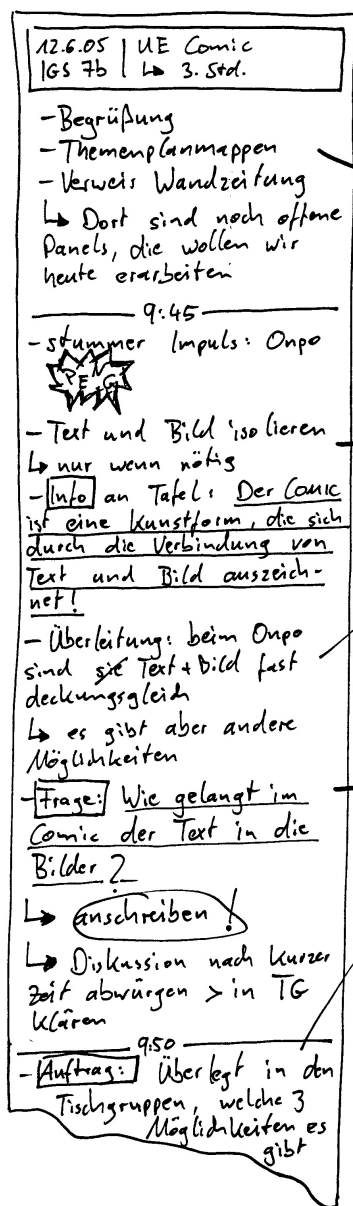 12.6.05 | UE Comic
IGS 7b | ↳ 3. Std.
- Begrüßung
- Themenplanmappen
- Verweis Wandzeitung
↳ Dort sind noch offene
Panels, die wollen wir
heute erarbeiten
9:45
- stummer Impuls: Onpo
PENG
- Text und Bild isolieren
↳ nur wenn nötig
- Info an Tafel: Der Comic
ist eine Kunstform, die sich
durch die Verbindung von
Text und Bild auszeich-
net!
- Überleitung: beim Onpo
sind sie Text + Bild fast
deckungsgleich
↳ es gibt aber andere
Möglichkeiten
- Frage: Wie gelangt im
Comic der Text in die
Bilder?
↳ anschreiben!
↳ Diskussion nach kurzer
Zeit abwürgen > in TG
klären
9:50
- Auftrag: Überlegt in den
Tischgruppen, welche 3
Möglichkeiten es
gibt